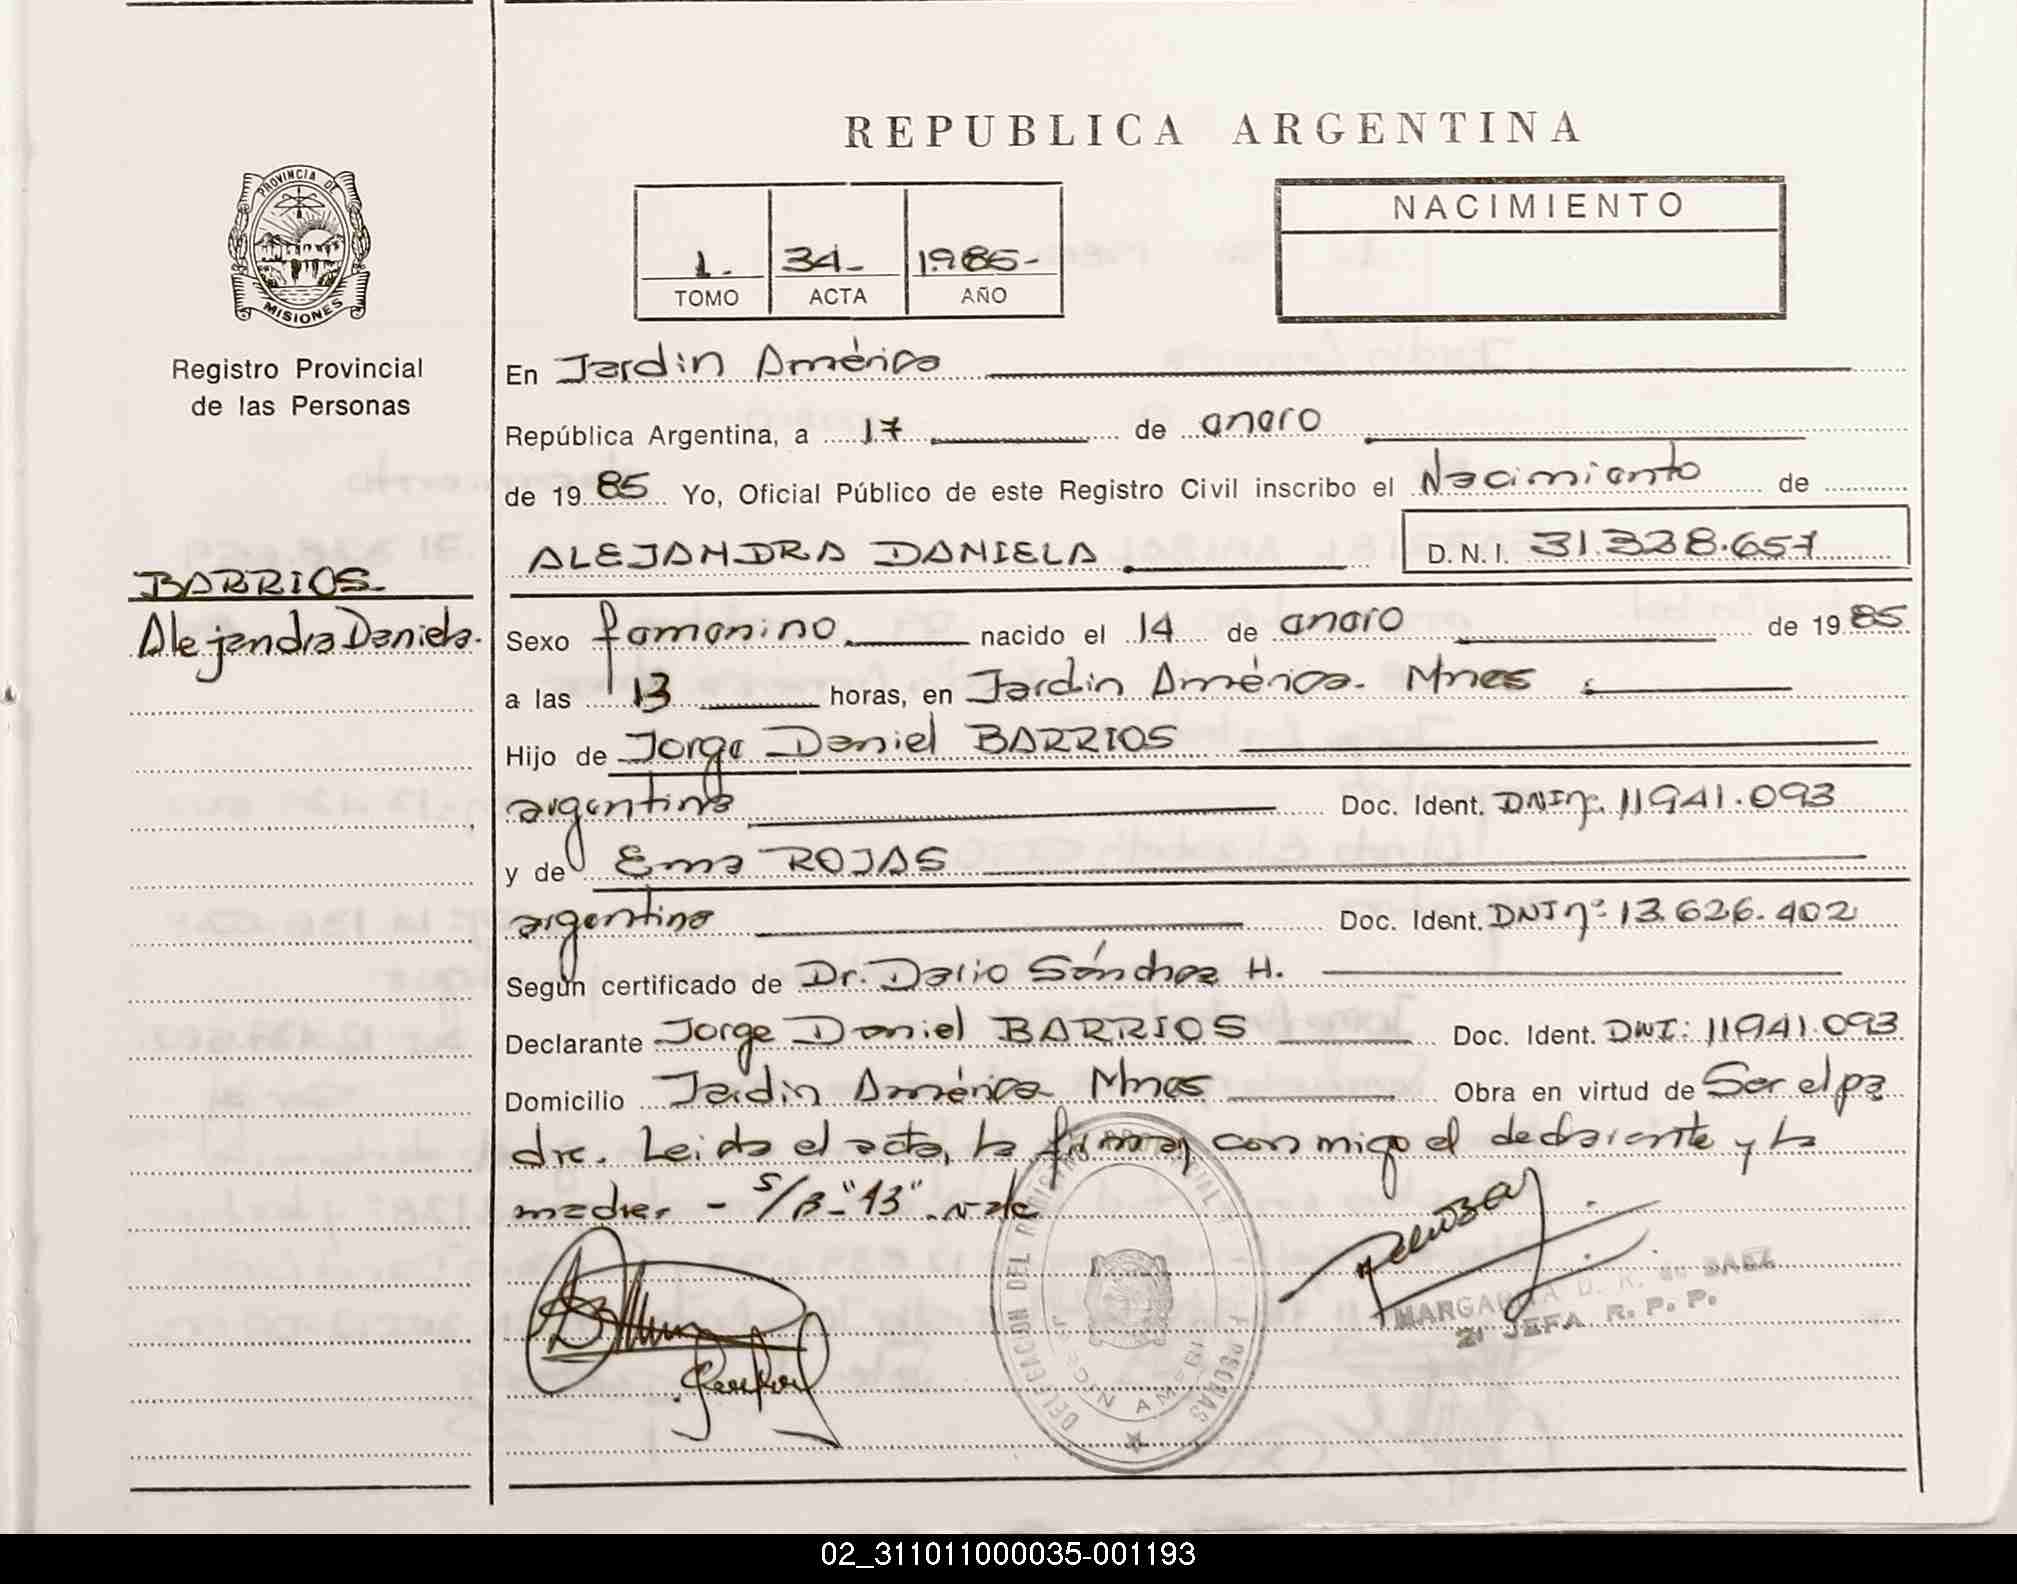 REPUBLICA ARGENTINA
PROVINCIA DE
MISIONES
Registro Provincial
de las Personas
1.
34-
1985-
TOMO
ACTA
AÑO
NACIMIENTO
En Jardín América
República Argentina, a 17 de enero
de 1985 Yo, Oficial Público de este Registro Civil inscribo el Nacimiento de
ALEJANDRA DANIELA D.N.I. 31.328.657
BARRIOS-
Alejandra Daniela.
Sexo femenino. nacido el 14 de enero de 1985
a las 13 horas, en Jardín América. Mnes
Hijo de Jorge Daniel BARRIOS
argentina Doc. Ident. DNI nº 11941.093
y de Ema ROJAS
argentina Doc. Ident. DNI nº 13.626.402
Según certificado de Dr. Dario Sánchez H.
Declarante Jorge Daniel BARRIOS Doc. Ident. DNI: 11941.093
Domicilio Jardín América Mnes Obra en virtud de Ser el pa
dre. Leida el acta, la firman conmigo el declarante y la
madre. - S/R-"13". vale
DELEGACION DEL PROVINCIAL
2ª JEFA R. P. P.
02_311011000035-001193